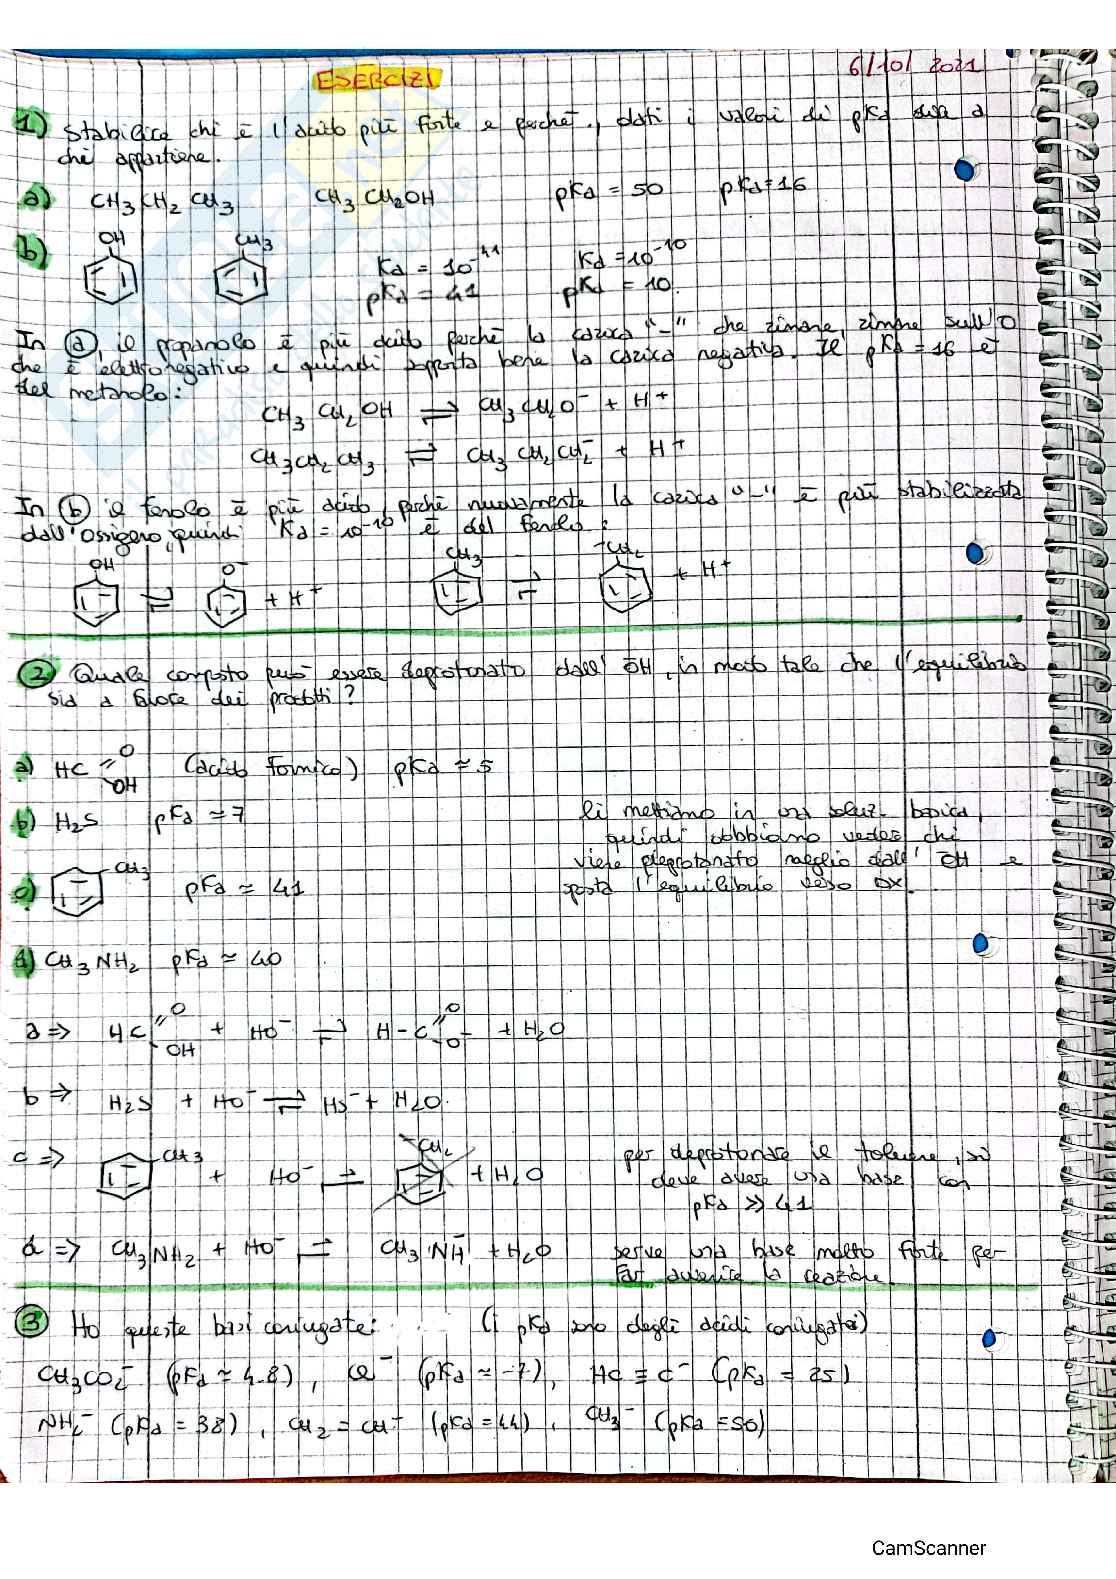 6/10/2021
ESERCIZI
1) Stabilire chi è l'acido più forte e perché, dati i valori di pKa dire a
chi appartiene.
a) CH3CH2CH3 CH3CH2OH pKa = 50 pKa=16
b) OH CH3 Ka = 10^-41 Ka = 10^-10
pKa = 41 pKa = 10
In (a), il propanolo è più acido perché la carica "-" che rimane, rimane sull'O
che è elettronegativo e quindi sopporta bene la carica negativa. Il pKa = 16 è
del metanolo:
CH3CH2OH ⇌ CH3CH2O^- + H^+
CH3CH2CH3 ⇌ CH3CH2CH2^- + H^+
In (b) il fenolo è più acido, perché nuovamente la carica "-" è più stabilizzata
dall'ossigeno, quindi Ka = 10^-10 è del fenolo:
OH ⇌ O^- + H^+ CH3 ⇌ ^-CH2 + H^+
2) Quale composto può essere deprotonato dall' OH^-, in modo tale che l'equilibrio
sia a favore dei prodotti?
a) HC O OH (acido formico) pKa ≈ 5
b) H2S pKa ≈ 7
li mettiamo in una soluz. basica,
quindi dobbiamo vedere chi
viene deprotonato meglio dall' OH^- e
sposta l'equilibrio verso DX.
c) CH3 pKa ≈ 41
d) CH3NH2 pKa ≈ 40
a ⇒ HC O OH + HO^- ⇌ H-C O O^- + H2O
b ⇒ H2S + HO^- ⇌ HS^- + H2O.
c ⇒ CH3 + HO^- ⇌ ^-CH2 + H2O per deprotonare il toluene, si
deve avere una base con
pKa >> 41
d ⇒ CH3NH2 + HO^- ⇌ CH3NH^- + H2O serve una base molto forte per
far avvenire la reazione.
3) Ho queste basi coniugate: (i pKa sono degli acidi coniugati)
CH3CO2^- (pKa ≈ 4.8), Cl^- (pKa ≈ -7), HC≡C^- (pKa = 25)
NH2^- (pKa = 38), CH2=CH^- (pKa=44), CH3^- (pKa =50)
CamScanner